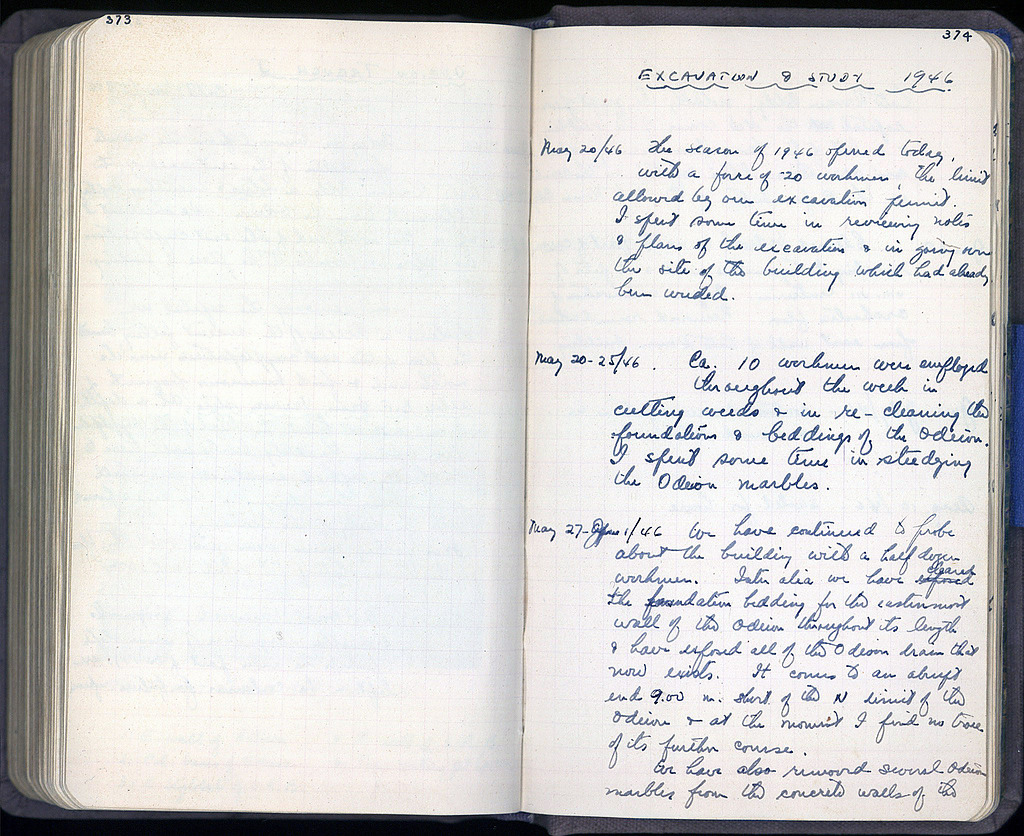 373
374
EXCAVATION & STUDY 1946
May 20/46 The season of 1946 opened today,
with a force of 20 workmen, the limit
allowed by our excavation permit.
I spent some time in reviewing notes
& plans of the excavation & in going over
the site of the building which had already
been weeded.
May 20-25/46. Ca. 10 workmen were employed
throughout the week in
cutting weeds & in re-cleaning the
foundations & beddings of the Odeion.
I spent some time in studying
the Odeion marbles.
May 27-June 1/46 We have continued to probe
about the building with a half dozen
workmen. Inter alia we have exposed cleared
the foundation bedding for the easternmost
wall of the Odeion throughout its length
& have exposed all of the Odeion drain that
now exists. It comes to an abrupt
end 9.00 m. short of the N limit of the
Odeion & at the moment I find no trace
of its further course.
We have also removed several Odeion
marbles from the concrete walls of the